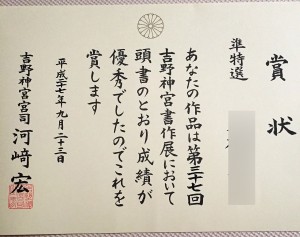 賞状
準特選
あなたの作品は第三十七回
吉野神宮書作展において
頭書のとおり成績が
優秀でしたのでこれを
賞します
平成二十七年九月二十三日
吉野神宮宮司 河﨑 宏